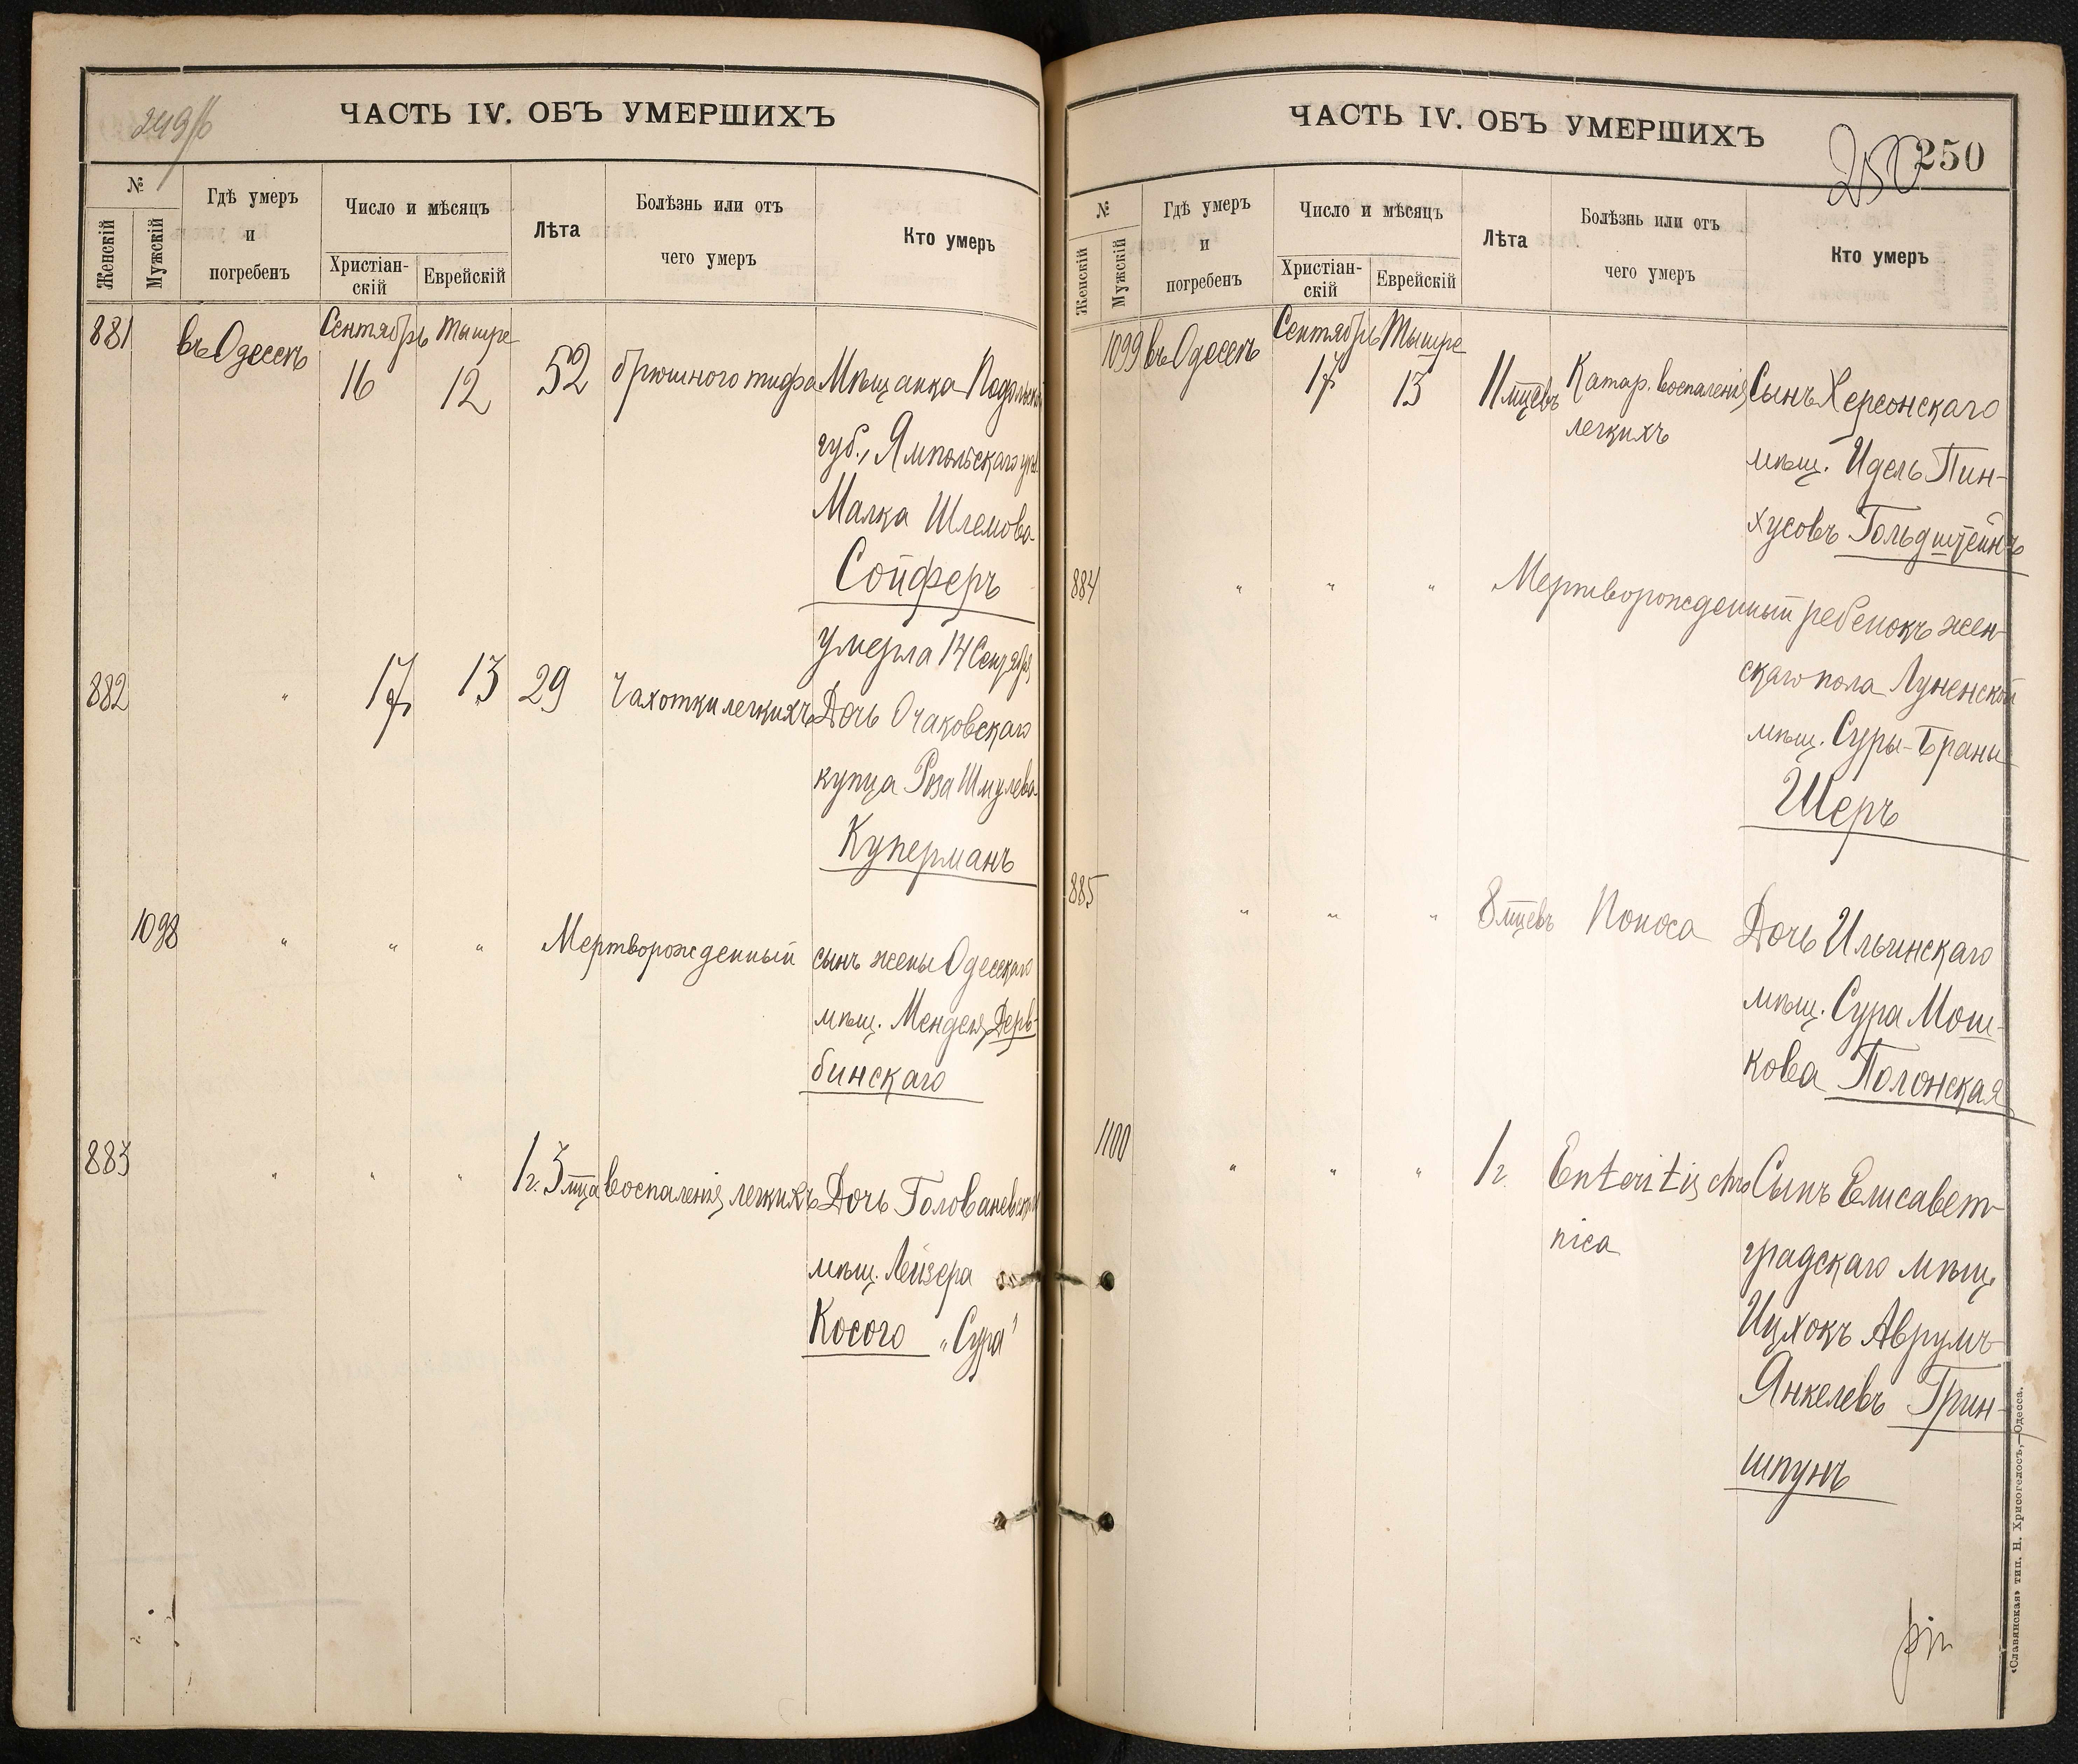 249/б
ЧАСТЬ IV. ОБЪ УМЕРШИХЪ
№
Женскій
Мужскій
Гдѣ умеръ
и
погребенъ
Число и мѣсяцъ
Христіан-
скій
Еврейскій
Лѣта
Болѣзнь или отъ
чего умеръ
Кто умеръ
881 въ Одессѣ Сентябрь 16 Тышре 12 52 брюшного тифа Мѣщанка Подольской
губ., Ямпольскаго уѣз.
Малка Шлемова
Сойферъ
умерла 14 Сентября
882 " 17 13 29 Чахотки легкихъ Дочь Очаковскаго
купца Роза Шмулева
Куперманъ
1098 " " " Мертворожденный сынъ жены Одесскаго
мѣщ. Менделя Дерв-
бинскаго
883 " " " 1 г. 3 мца воспаленія легкихъ Дочь Голованевск
мѣщ. Лейзера
Косого „Сура"
ЧАСТЬ IV. ОБЪ УМЕРШИХЪ
250
250
№
Женскій
Мужскій
Гдѣ умеръ
и
погребенъ
Число и мѣсяцъ
Христіан-
скій
Еврейскій
Лѣта
Болѣзнь или отъ
чего умеръ
Кто умеръ
1099 въ Одессѣ Сентябрь 17 Тышре 13 11 мцевъ Катар. воспаленія Сынъ Херсонскаго
легкихъ
мѣщ. Идель Пин-
хусовъ Гольдштейнъ
884 " " " Мертворожденный ребенокъ жен-
скаго пола Луненской
мѣщ. Суры-Браны
Шеръ
885 " " " 8 мцевъ Поноса Дочь Ильинскаго
мѣщ. Сура Мош-
кова Полонская
1100 " " " 1 г. Enteritis chro Сынъ Елисавет-
nica
градскаго мѣщ.
Ицхокъ Аврумъ-
Янкелевъ Грин-
шпунъ
«Славянская» тип. Н. Хрисогелосъ,—Одесса.